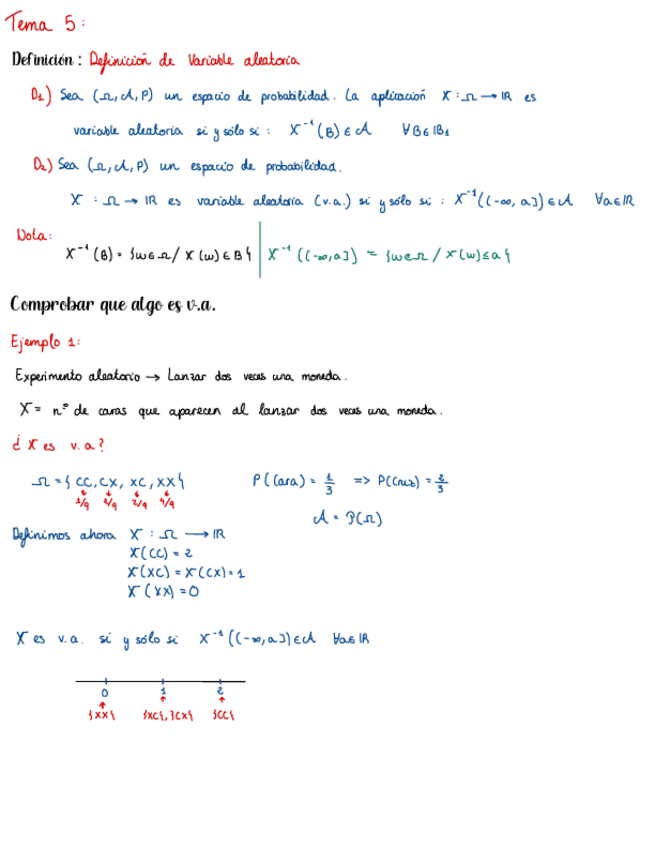 Tema 5:
Definición: Definición de Variable aleatoria
D₁) Sea (Ω, A, P) un espacio de probabilidad. La aplicación X : Ω → ℝ es
variable aleatoria si y sólo si : X⁻¹(B) ∈ A ∀B ∈ 𝔹₁
D₂) Sea (Ω, A, P) un espacio de probabilidad.
X : Ω → ℝ es variable aleatoria (v.a.) si y sólo si : X⁻¹((-∞, a]) ∈ A ∀a∈ℝ
Nota:
X⁻¹(B) = {w∈Ω / X(w) ∈ B} | X⁻¹((-∞, a]) = {w∈Ω / X(w) ≤ a}
Comprobar que algo es v.a.
Ejemplo 1:
Experimento aleatorio → Lanzar dos veces una moneda.
X = n.º de caras que aparecen al lanzar dos veces una moneda.
¿X es v.a?
Ω = {CC, CX, XC, XX} P(Cara) = 1/3 => P(Cruz) = 2/3
1/9 2/9 2/9 4/9
A = P(Ω)
Definimos ahora X : Ω → ℝ
X(CC) = 2
X(XC) = X(CX) = 1
X(XX) = 0
X es v.a. si y sólo si X⁻¹((-∞, a]) ∈ A ∀a∈ℝ
0 1 2
{XX} {XC}, {CX} {CC}